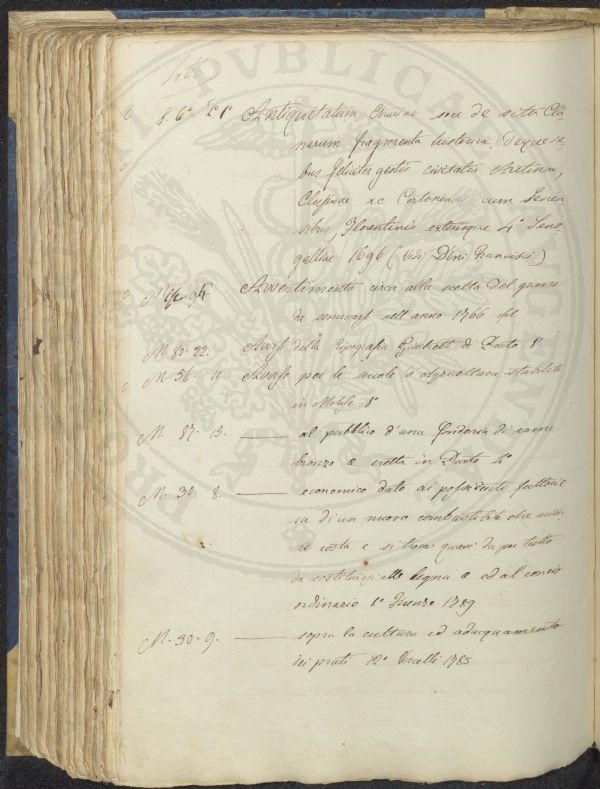 86° 21° Antiquitatum Etruriae seu de situ Cla
narum fragmenta historica, deque re-
bus feliciter gestis civitatis Aretinae,
Clusinae ac Cortonensis cum Senen
sibus, Florentinis extensque 4° Sene
galliae 1696 (Vedi Dini Francisci)
Misc. 94 Avvertimento circa alla scelta del grano
da seminarsi nell'anno 1766 fol
M. 83. 22. Avviso della Tipografia Giachetti di Prato 8°
M. 56. 11. Avviso per le scuole d'Agricoltura stabilite
in Molise 8°
M. 87. 15. — al pubblico d'una fonderia di
bronzo e eretta in Prato 4°
M. 30. 8. — economico dato ai possidenti fattori
su di un nuovo combustibile che
costa e si trova quasi da per tutto
da sostituirsi alle legna e ed al
ordinario 8° Firenze 1789
M. 30. 9. — sopra la cultura ed adacquamento
dei prati 12° Vercelli 1785
PRO PUBLICA